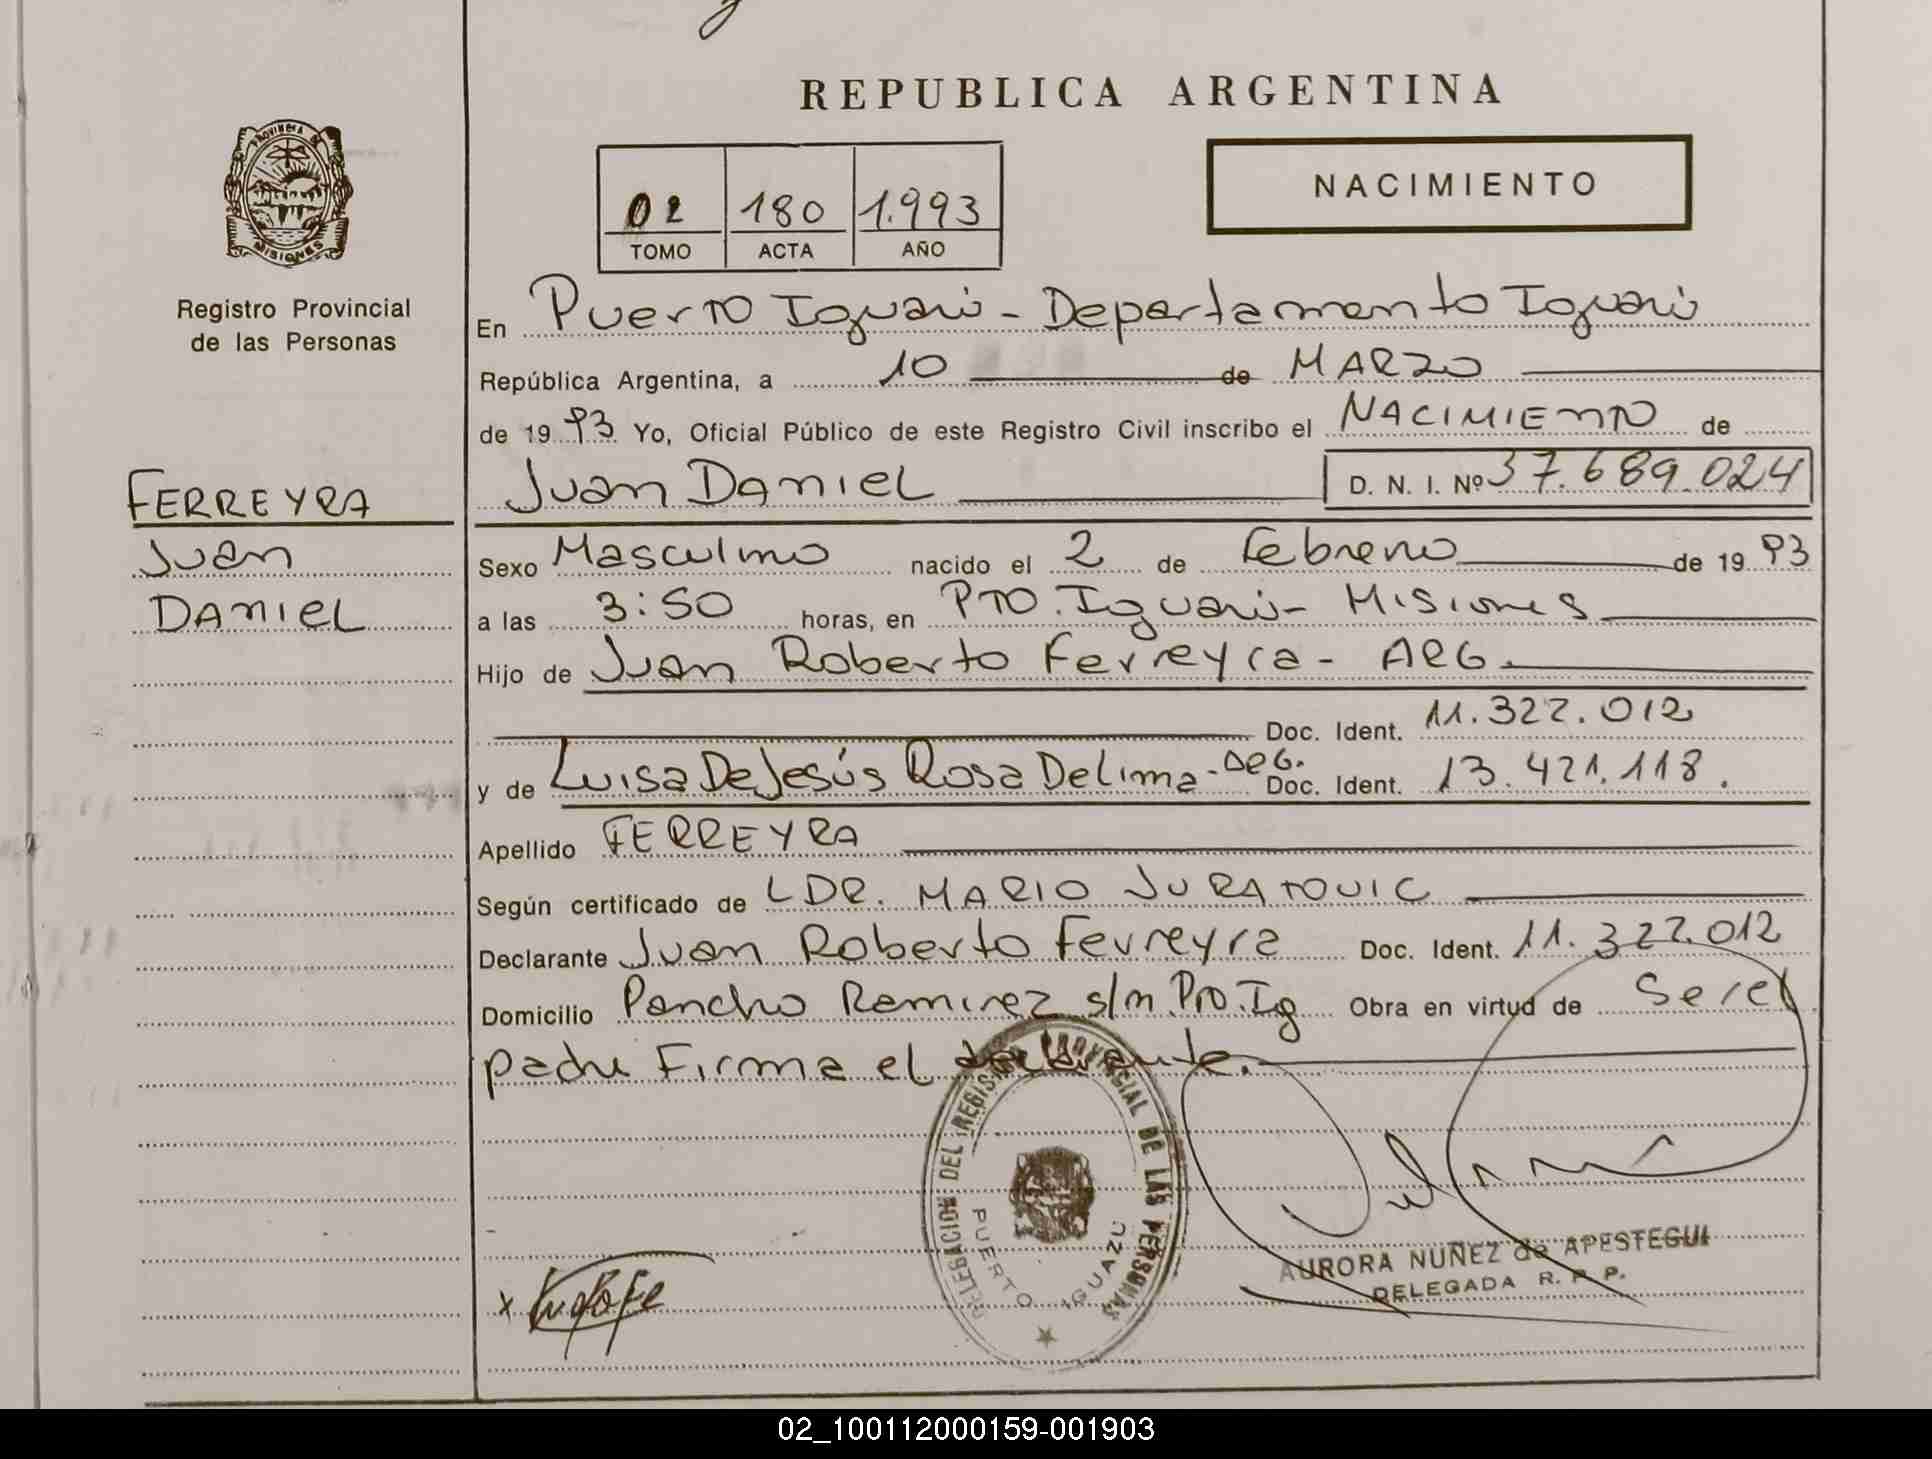 REPUBLICA ARGENTINA
PROVINCIA DE
MISIONES
Registro Provincial
de las Personas
02 180 1.993
TOMO ACTA AÑO
NACIMIENTO
En Puerto Iguazú - Departamento Iguazú
República Argentina, a 10 de MARZO
de 19 93 Yo, Oficial Público de este Registro Civil inscribo el NACIMIENTO de
Juan DANIEL D. N. I. Nº 37.689.024
FERREYRA
Juan
DANIEL
Sexo Masculino nacido el 2 de Febrero de 19 93
a las 3:50 horas, en PTO. Iguazú - Misiones
Hijo de Juan Roberto Ferreyra - ARG.
Doc. Ident. 11.322.012
y de Luisa De Jesús Rosa De Lima - ARG. Doc. Ident. 13.421.118.
Apellido FERREYRA
Según certificado de LDR. MARIO JURATOVIC
Declarante Juan Roberto Ferreyra Doc. Ident. 11.322.012
Domicilio Pancho Ramirez s/n. Pto. Ig Obra en virtud de Ser el
padre Firma el declarante.
DELEGACION DEL REGISTRO PROVINCIAL DE LAS PERSONAS
PUERTO IGUAZU
AURORA NUÑEZ de APESTEGUI
DELEGADA R. P. P.
x
02_100112000159-001903